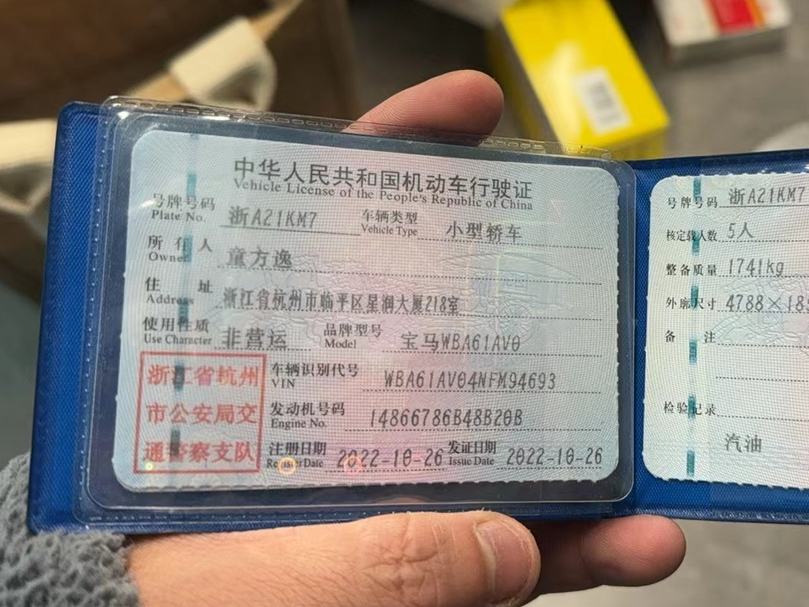 中华人民共和国机动车行驶证
Vehicle License of the People's Republic of China
号牌号码 浙A21KM7 车辆类型 小型轿车
Plate No. Vehicle Type
所有人 童方逸
Owner
住址 浙江省杭州市临平区星润大厦218室
Address
使用性质 非营运 品牌型号 宝马WBA61AV0
Use Character Model
浙江省杭州
市公安局交
通警察支队
车辆识别代号 WBA61AV04NFM94693
VIN
发动机号码 14866786B48B20B
Engine No.
注册日期 2022-10-26 发证日期 2022-10-26
Register Date Issue Date
号牌号码 浙A21KM7
核定载人数 5人
整备质量 1741kg
外廓尺寸 4788×18
备注
检验记录
汽油